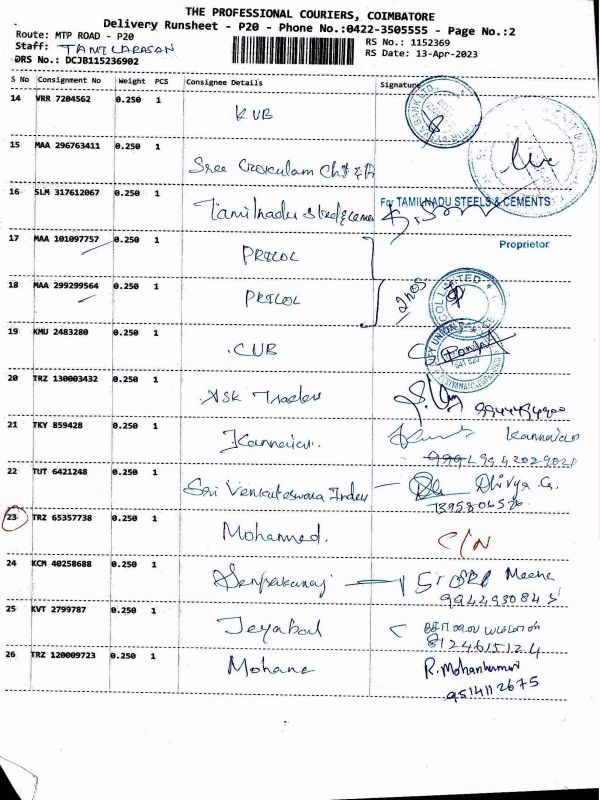 THE PROFESSIONAL COURIERS, COIMBATORE
Delivery Runsheet - P20 - Phone No.:0422-3505555 - Page No.:2
Route: MTP ROAD - P20
RS No.: 1152369
Staff: TAMILARASAN
RS Date: 13-Apr-2023
DRS No.: DCJB115236902
S No Consignment No Weight PCS Consignee Details Signature
14 VRR 7204562 0.250 1 KVB
15 MAA 296763411 0.250 1 Sree Gokulam Chit &
16 SLM 317612067 0.250 1 Tamilnadu Steel & Cement For TAMILNADU STEELS & CEMENTS
Proprietor
17 MAA 101097757 0.250 1 PRICOL
18 MAA 299299564 0.250 1 PRICOL 2nos
19 KMU 2483280 0.250 1 CUB
20 TRZ 130003432 0.250 1 ASK Traders
21 TKY 859428 0.250 1 Kannaian. Kannaian
22 TUT 6421248 0.250 1 Sri Venkateswara Divya G.
23 TRZ 65357738 0.250 1 Mohamed. C/N
24 KCM 40258688 0.250 1 Meena
25 KVT 2799787 0.250 1 Jeyabal
8124615124
26 TRZ 120009723 0.250 1 Mohana R. Mohankumari
9514112675